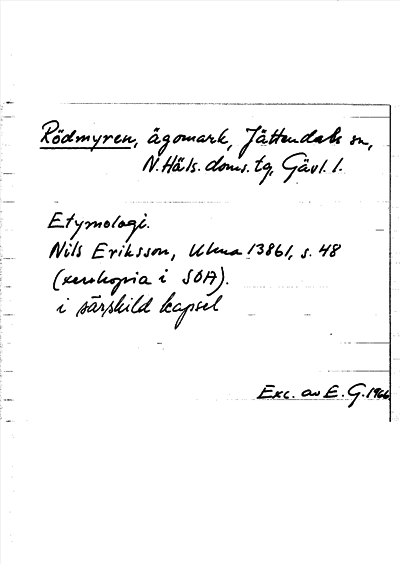 Rödmyren, ägomark, Jättendals sn,
N. Häls. doms. tg, Gävl. l.
Etymologi.
Nils Eriksson, Ulma 13861, s. 48
(xerokopia i SOA).
i särskild kapsel
Exc. av E. G. 1966